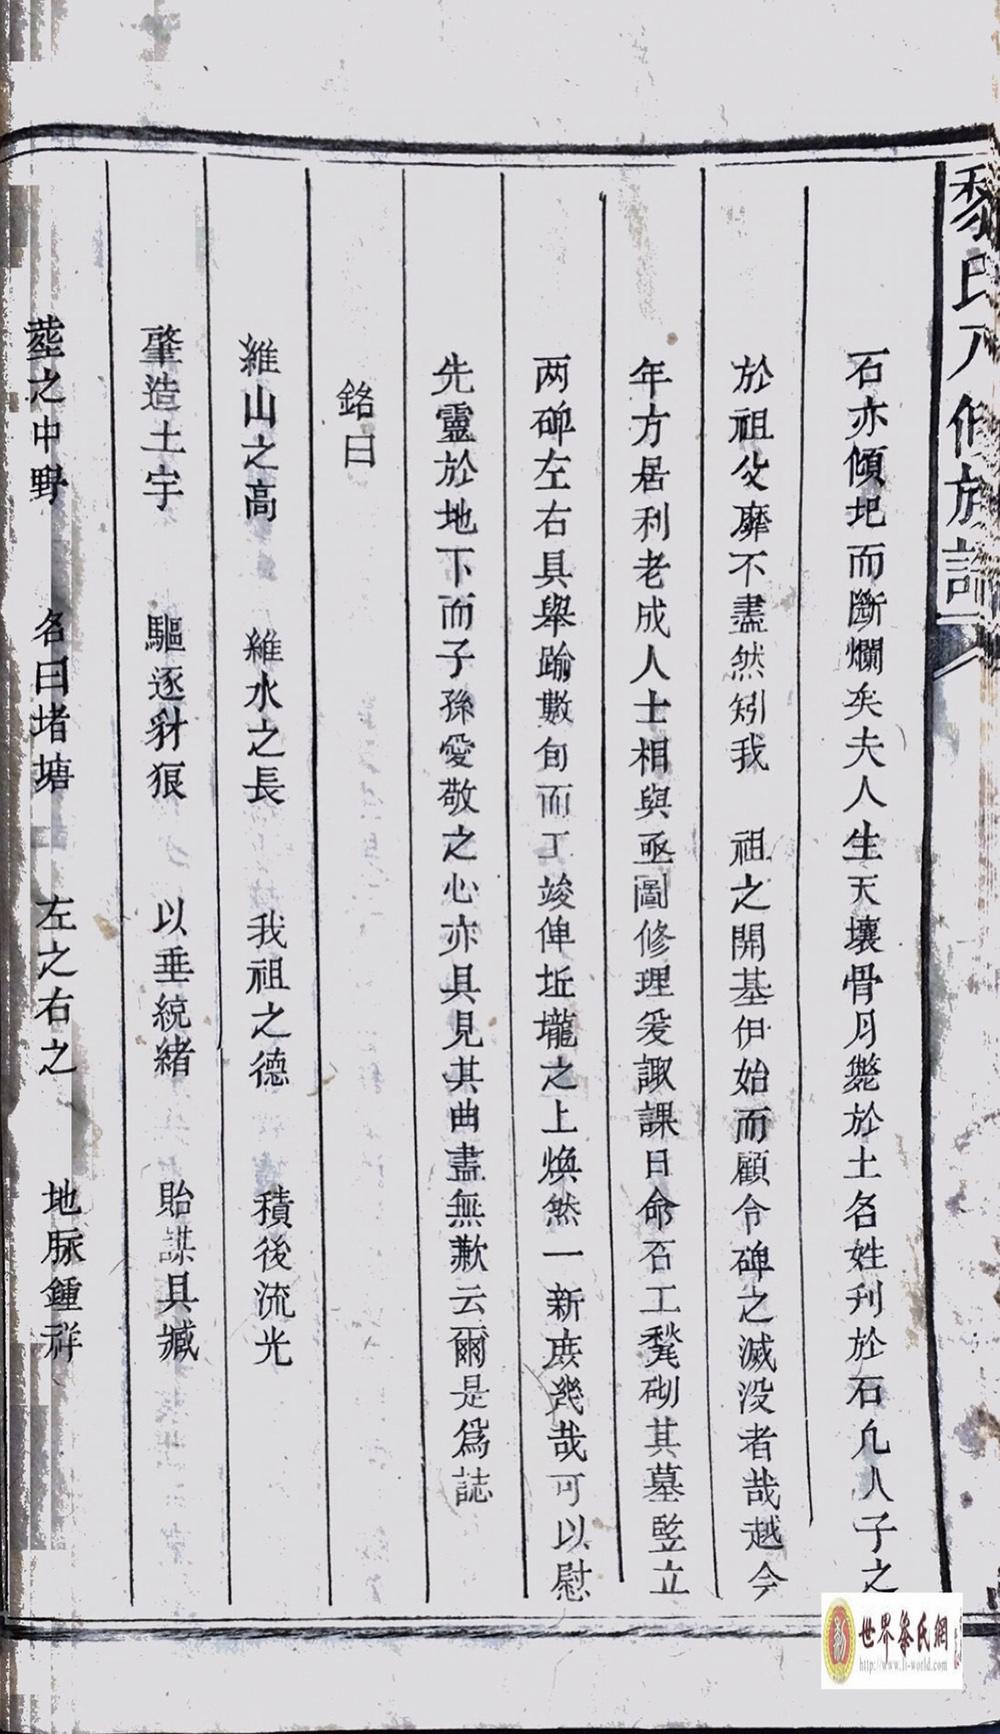 黎氏八修族譜
石亦傾圮而斷爛矣夫人生天壤骨月斃於土名姓刊於石凢人子之
於祖父靡不盡然矧我　祖之開基伊始而顧令碑之滅没者哉越今
年方居利老成人士相與亟圖修理爰諏課日命石工甃砌其墓竪立
两碑左右具舉踰數旬而工竣俾坵壠之上煥然一新庶幾哉可以慰
先靈於地下而子孫愛敬之心亦具見其曲盡無歉云爾是爲誌
銘曰
維山之高　維水之長　我祖之德　積後流光
肇造土宇　驅逐豺狼　以垂統緒　貽謀具臧
塟之中野　名曰堵塘　左之右之　地脈鍾祥
世界黎氏網
http://www.li-world.com